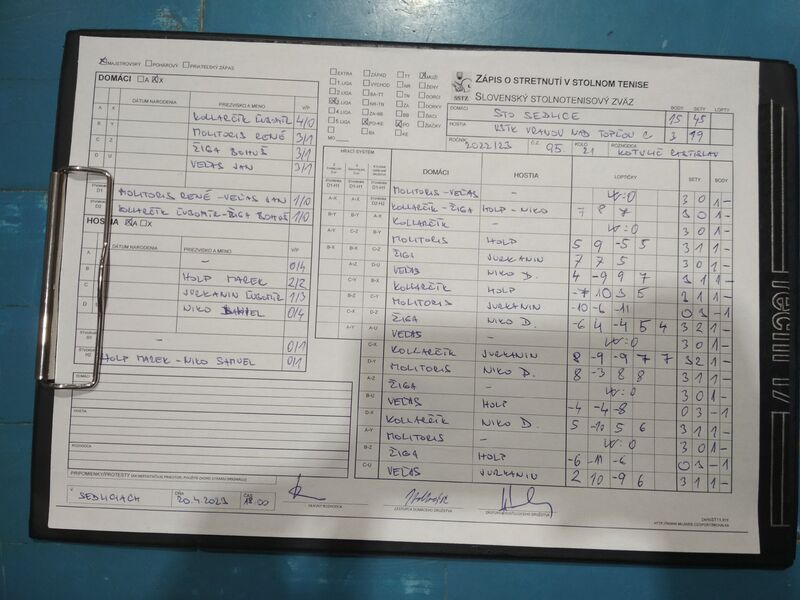 MAJSTROVSKÝ POHÁROVÝ PRIATEĽSKÝ ZÁPAS
DOMÁCI A X
DÁTUM NARODENIA PRIEZVISKO A MENO V/P
A X KOLLARČÍK ĽUBOMÍR 4/0
B Y MOLITORIS RENÉ 3/1
C Z ŽIGA BOHUŠ 3/1
D U VEĽAS JAN 3/1
D1 MOLITORIS RENÉ - VEĽAS JAN 1/0
D2 KOLLARČÍK ĽUBOMÍR - ŽIGA BOHUŠ 1/0
HOSTIA A X
DÁTUM NARODENIA PRIEZVISKO A MENO
A - 0/4
B HOLP MAREK 2/2
C JURKANIN ĽUBOMÍR 1/3
D NIKO 0/4
- 0/1
HOLP MAREK - NIKO SAMUEL 0/1
DOMÁCI
HOSTIA
ROZHODCA
PRIPOMIENKY/PROTESTY
V SEDLICIACH DŇA 20.4.2023 ČAS 18.00
HLAVNÝ ROZHODCA
ZÁSTUPCA DOMÁCEHO DRUŽSTVA
ZÁSTUPCA HOSŤUJÚCEHO DRUŽSTVA
EXTRA ZÁPAD TT MUŽI
1.LIGA VÝCHOD NR ŽENY
2.LIGA BA-TT TN DORCI
3.LIGA NR-TN ZA DORKY
4.LIGA ZA-BB BB ŽIACI
5.LIGA PO-KE PO ŽIAČKY
BA KE
MO
SSTZ
ZÁPIS O STRETNUTÍ V STOLNOM TENISE
SLOVENSKÝ STOLNOTENISOVÝ ZVÄZ
BODY SETY LOPTY
DOMÁCI STO SEDLICE 15 45
HOSTIA VSTK VRANOV NAD TOPĽOU C 3 19
ROČNÍK 2022/23 Č.Z. 95. KOLO 21 ROZHODCA
HRACÍ SYSTÉM
DOMÁCI HOSTIA LOPTIČKY SETY BODY
MOLITORIS - VEĽAS - W:0 3 0 1 -
KOLLARČÍK - ŽIGA HOLP - NIKO 7 8 7 3 0 1 -
KOLLARČÍK - W:0 3 0 1 -
MOLITORIS HOLP 5 9 -5 5 3 1 1 -
ŽIGA JURKANIN 7 7 5 3 0 1 -
VEĽAS NIKO D. 4 -9 9 7 3 1 1 -
KOLLARČÍK HOLP -7 10 3 5 3 1 1 -
MOLITORIS JURKANIN -10 -6 -11 0 3 - 1
ŽIGA NIKO D. -6 4 -4 5 4 3 2 1 -
VEĽAS - W:0 3 0 1 -
KOLLARČÍK JURKANIN 8 -9 -9 7 7 3 2 1 -
MOLITORIS NIKO D. 8 -3 8 8 3 1 1 -
ŽIGA - W:0 3 0 1 -
VEĽAS HOLP -4 -4 -8 0 3 - 1
KOLLARČÍK NIKO D. 5 -10 5 6 3 1 1 -
MOLITORIS - W:0 3 0 1 -
ŽIGA HOLP -6 -11 -6 0 3 - 1
VEĽAS JURKANIN 2 10 -9 6 3 1 1 -